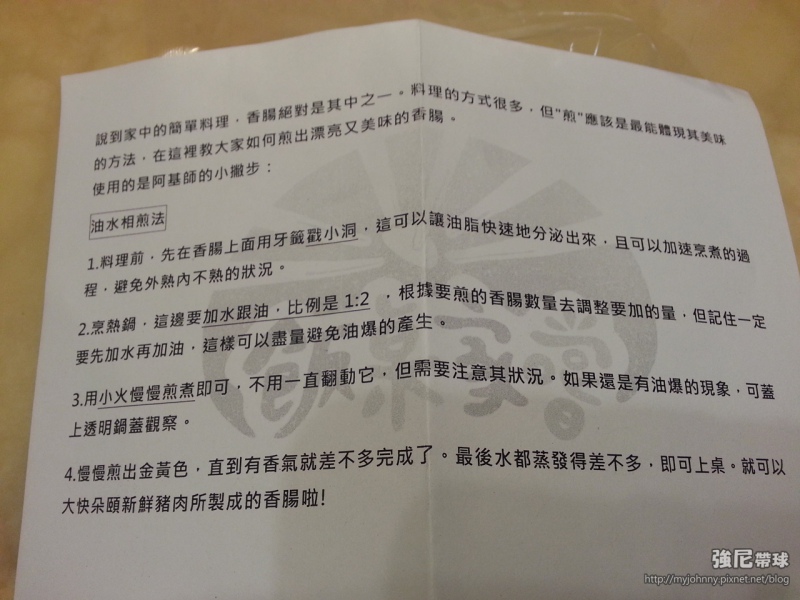 說到家中的簡單料理，香腸絕對是其中之一。料理的方式很多，但"煎"應該是最能體現其美味
的方法，在這裡教大家如何煎出漂亮又美味的香腸。
使用的是阿基師的小撇步：
油水相煎法
1.料理前，先在香腸上面用牙籤戳小洞，這可以讓油脂快速地分泌出來，且可以加速烹煮的過
程，避免外熟內不熟的狀況。
2.烹熱鍋，這邊要加水跟油，比例是 1:2 ，根據要煎的香腸數量去調整要加的量，但記住一定
要先加水再加油，這樣可以盡量避免油爆的產生。
3.用小火慢慢煎煮即可，不用一直翻動它，但需要注意其狀況。如果還是有油爆的現象，可蓋
上透明鍋蓋觀察。
4.慢慢煎出金黃色，直到有香氣就差不多完成了。最後水都蒸發得差不多，即可上桌。就可以
大快朵頤新鮮豬肉所製成的香腸啦!
強尼帶球
http://myjohnny.pixnet.net/blog